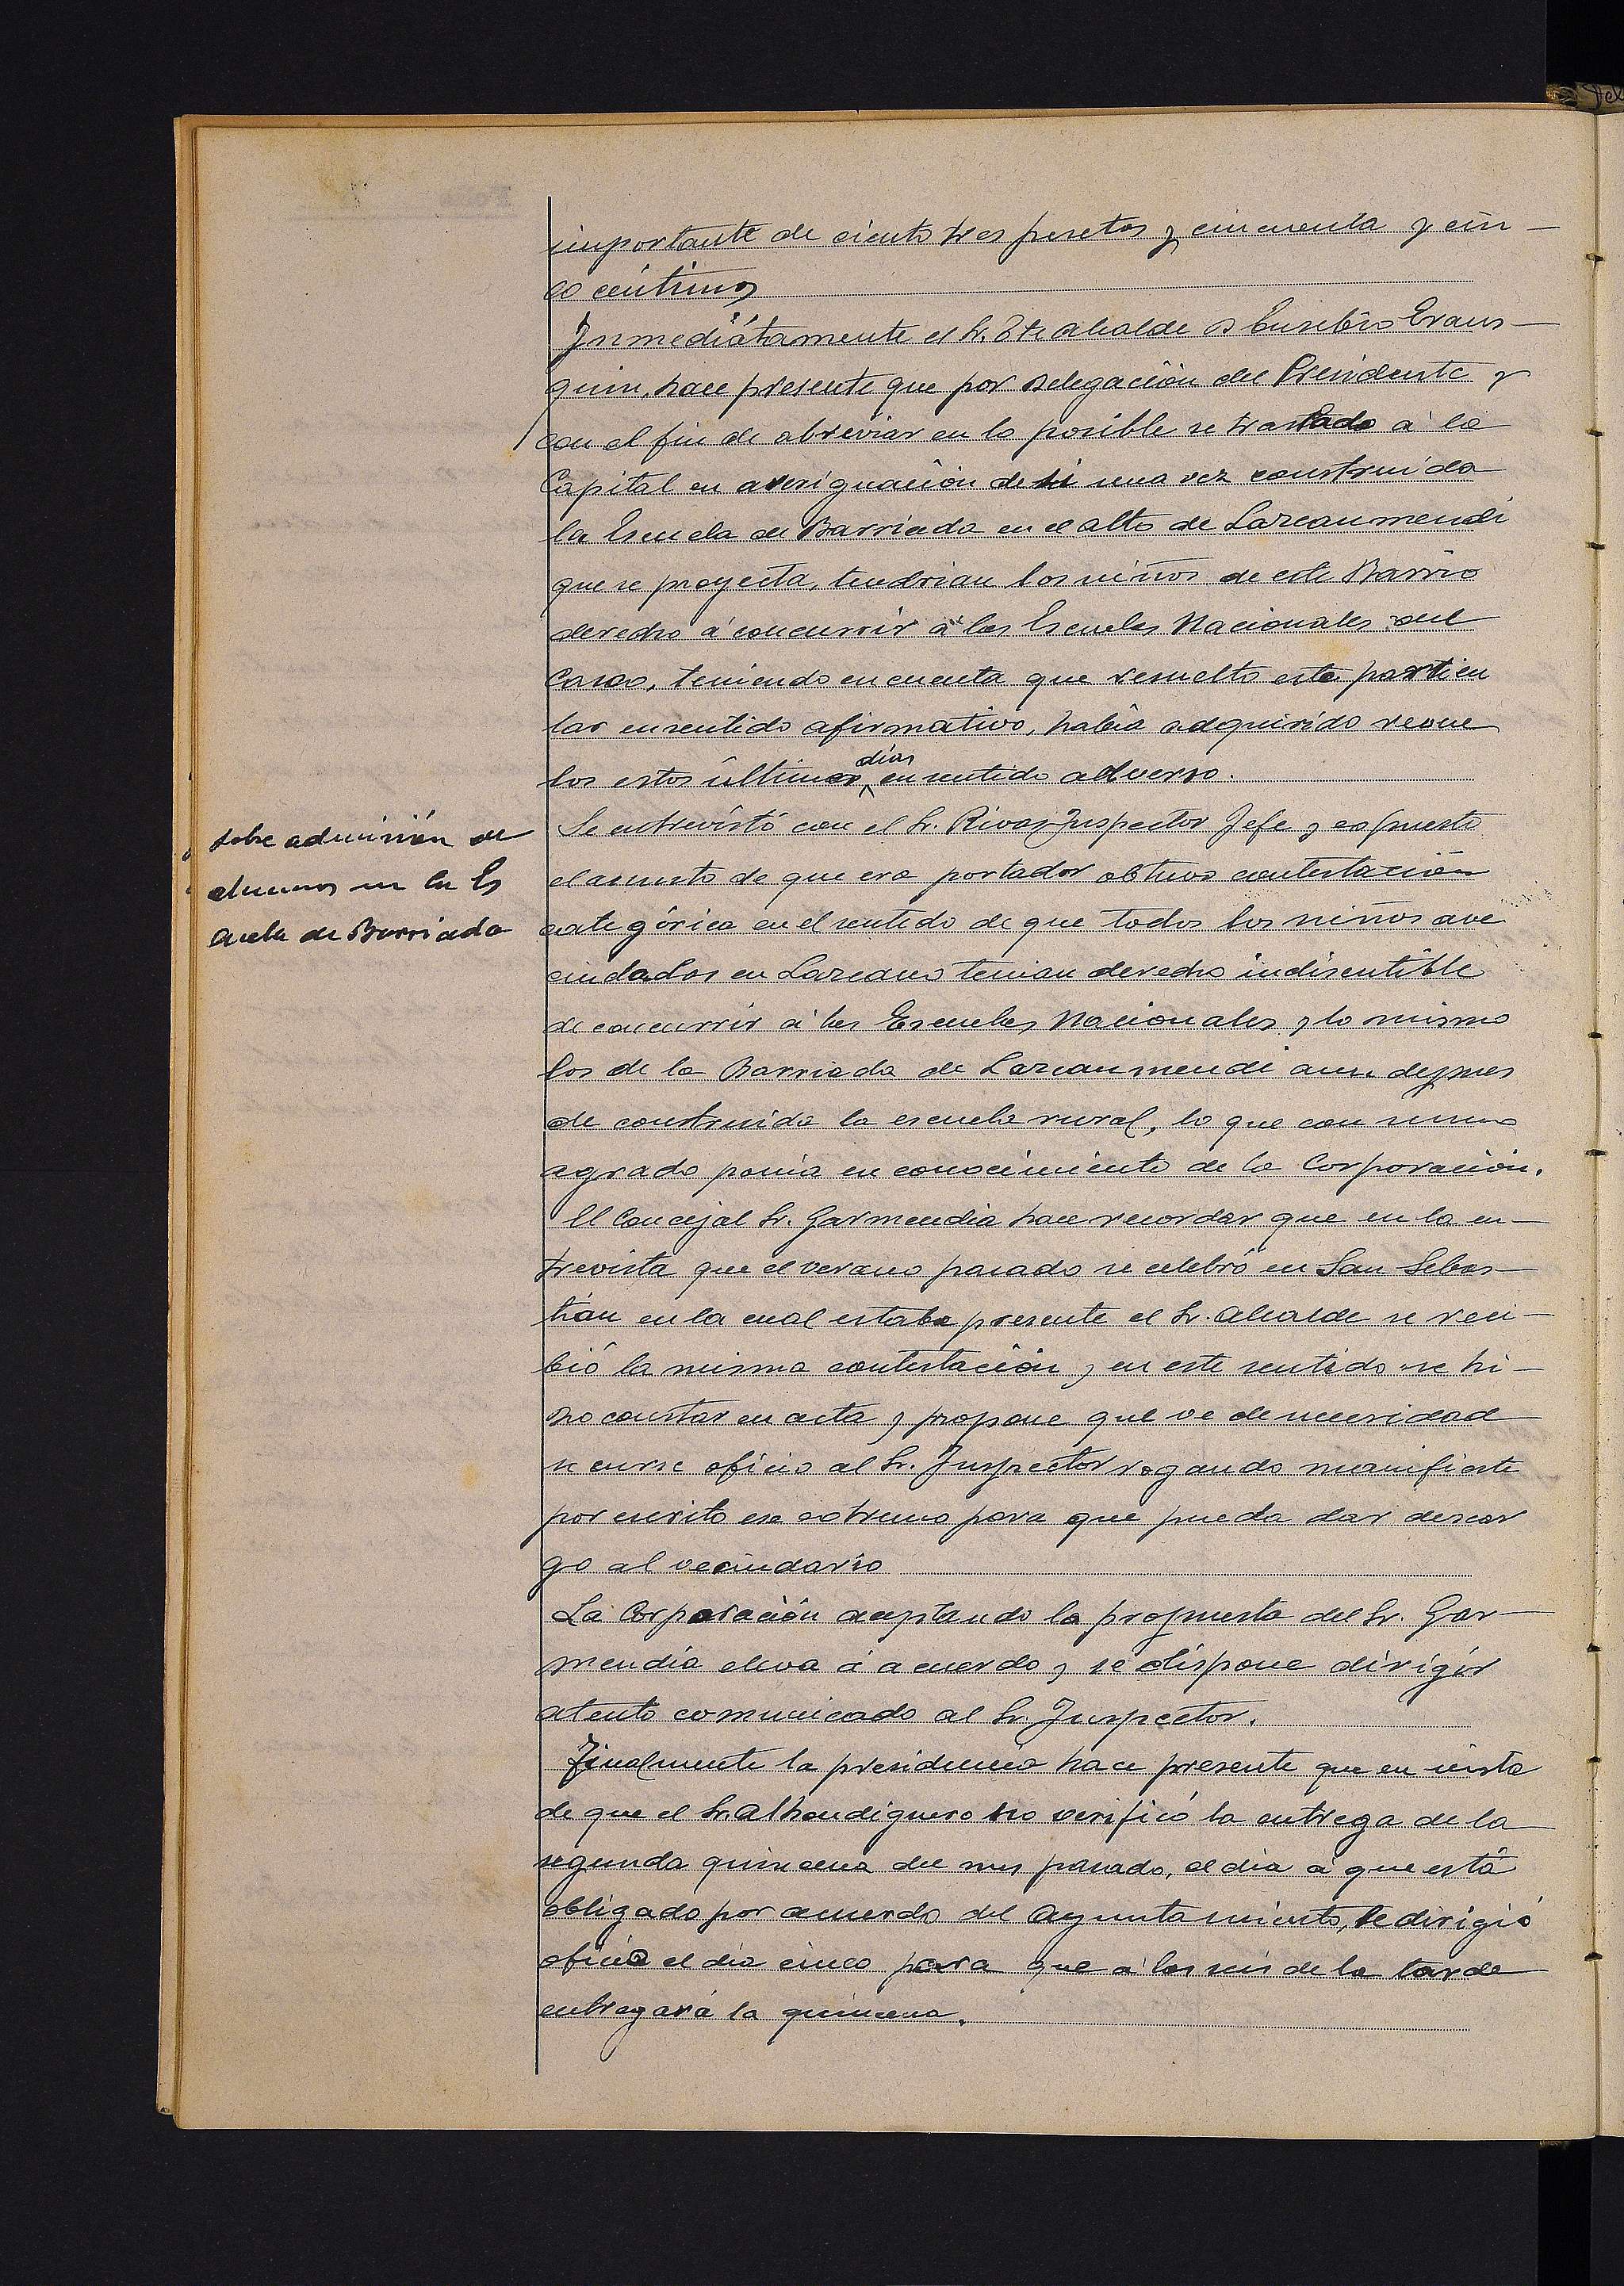 importante de ciento tres pesetas y cincuenta y cin-
co céntimos
Inmediátamente el Sr. Tte alcalde D Eusebio Eraus-
quin, hace presente que por delegación del Presidente y
con el fin de abreviar en lo posible se trasladó á la
Capital en averiguación de si una vez construida
la Escuela de Barriada en el alto de Lazcaumendi
que se proyecta, tendrian los niños de este Barrio
derecho á concurrir á las Escuelas Nacionales del
Casco, teniendo en cuenta que resuelto este particu
lar en sentido afirmativo, había adquirido recue
los estos últimos días en sentido adverso.
Se entrevistó con el Sr. Rivas Inspector Jefe y expuesto
el asunto de que era portador obtuvo contestación
categórica en el sentido de que todos los niños ave
cindados en Lazcano tenian derecho indiscutible
de concurrir á las Escuelas Nacionales y lo mismo
los de la Barriada de Lazcaumendi aun despues
de construida la escuela rural, lo que con sumo
agrado ponia en conocimiento de la Corporación.
El Concejal Sr. Garmendia hace recordar que en la en-
trevista que el verano pasado se celebró en San Sebas-
tián en la cual estaba presente el Sr. Alcalde se reci-
bió la misma contestación y en este sentido se hi-
zo constar en acta y propone que ve de necesidad
se curse oficio al Sr. Inspector rogando manifieste
por escrito ese extremo para que pueda dar descar
go al vecindario
La Corporación aceptando la propuesta del Sr. Gar-
mendia eleva á acuerdo y se dispone dirigir
atento comunicado al Sr. Inspector.
Finalmente la presidencia hace presente que en vista
de que el Sr. Alhondiguero no verificó la entrega de la
segunda quincena del mes pasado, el dia á que está
obligado por acuerdo del Ayuntamiento, se dirigió
oficio el dia cinco para que á las seis de la tarde
entregará la quincena.
sobre admisión de
alumnos en la Es
cuela de Barriada